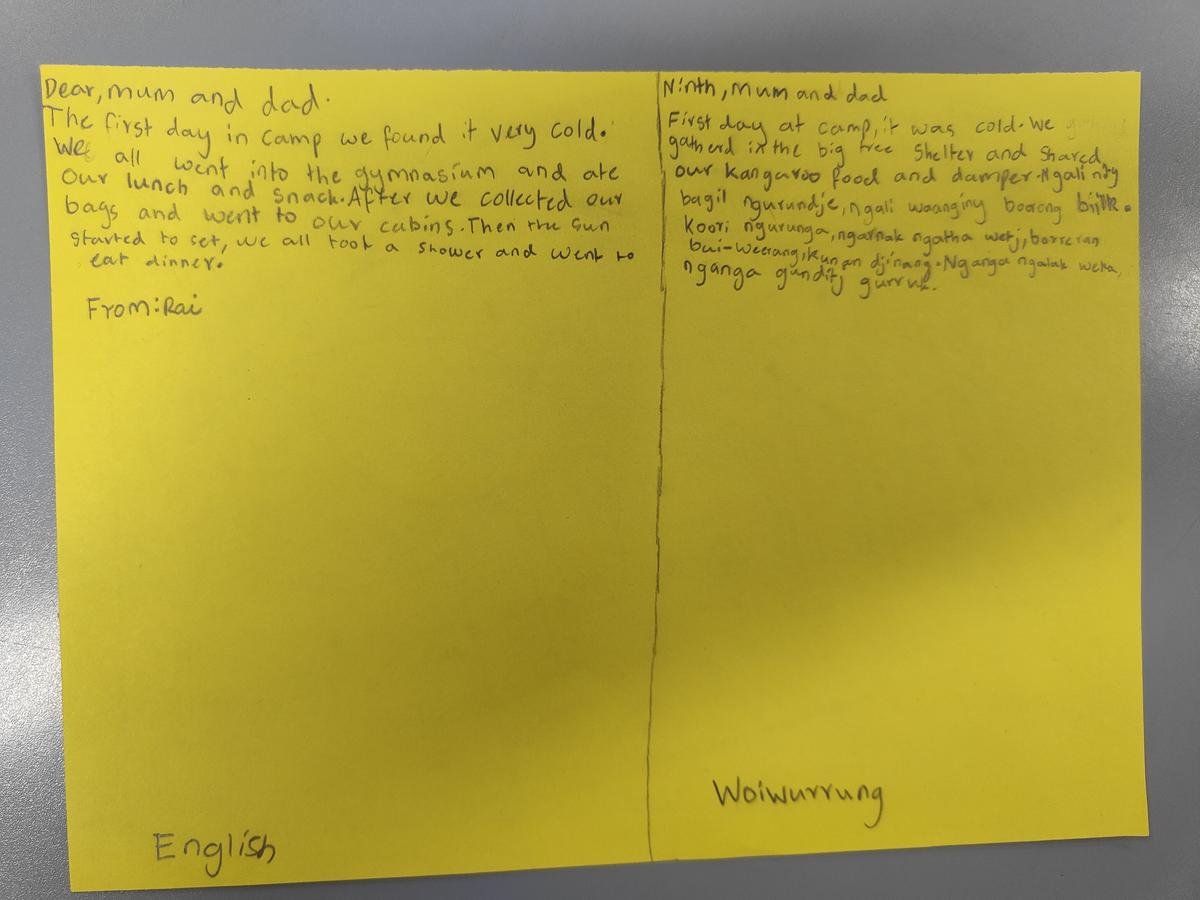 Dear, mum and dad.
The first day in camp we found it very cold.
We all went into the gymnasium and ate
our lunch and snack. After we collected our
bags and went to our cabins. Then the sun
started to set, we all took a shower and went to
eat dinner.
From: Rai
English
Ninth, Mum and dad
First day at camp, it was cold. We
gatherd in the big tree shelter and shared
our kangaroo food and damper. Ngali nity
bagil ngurundje, ngali waanginy boorong biik.
Koori ngurunga, ngarnak ngatha wetj, borreran
bui-weerang, kunan djinang. Nganga ngalak weka,
nganga gunditj gurruk.
Woiwurrung